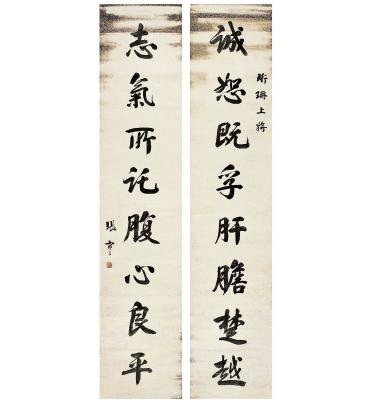 誠恕既孚肝膽楚越
珩珊上將
志氣所託腹心良平
張謇